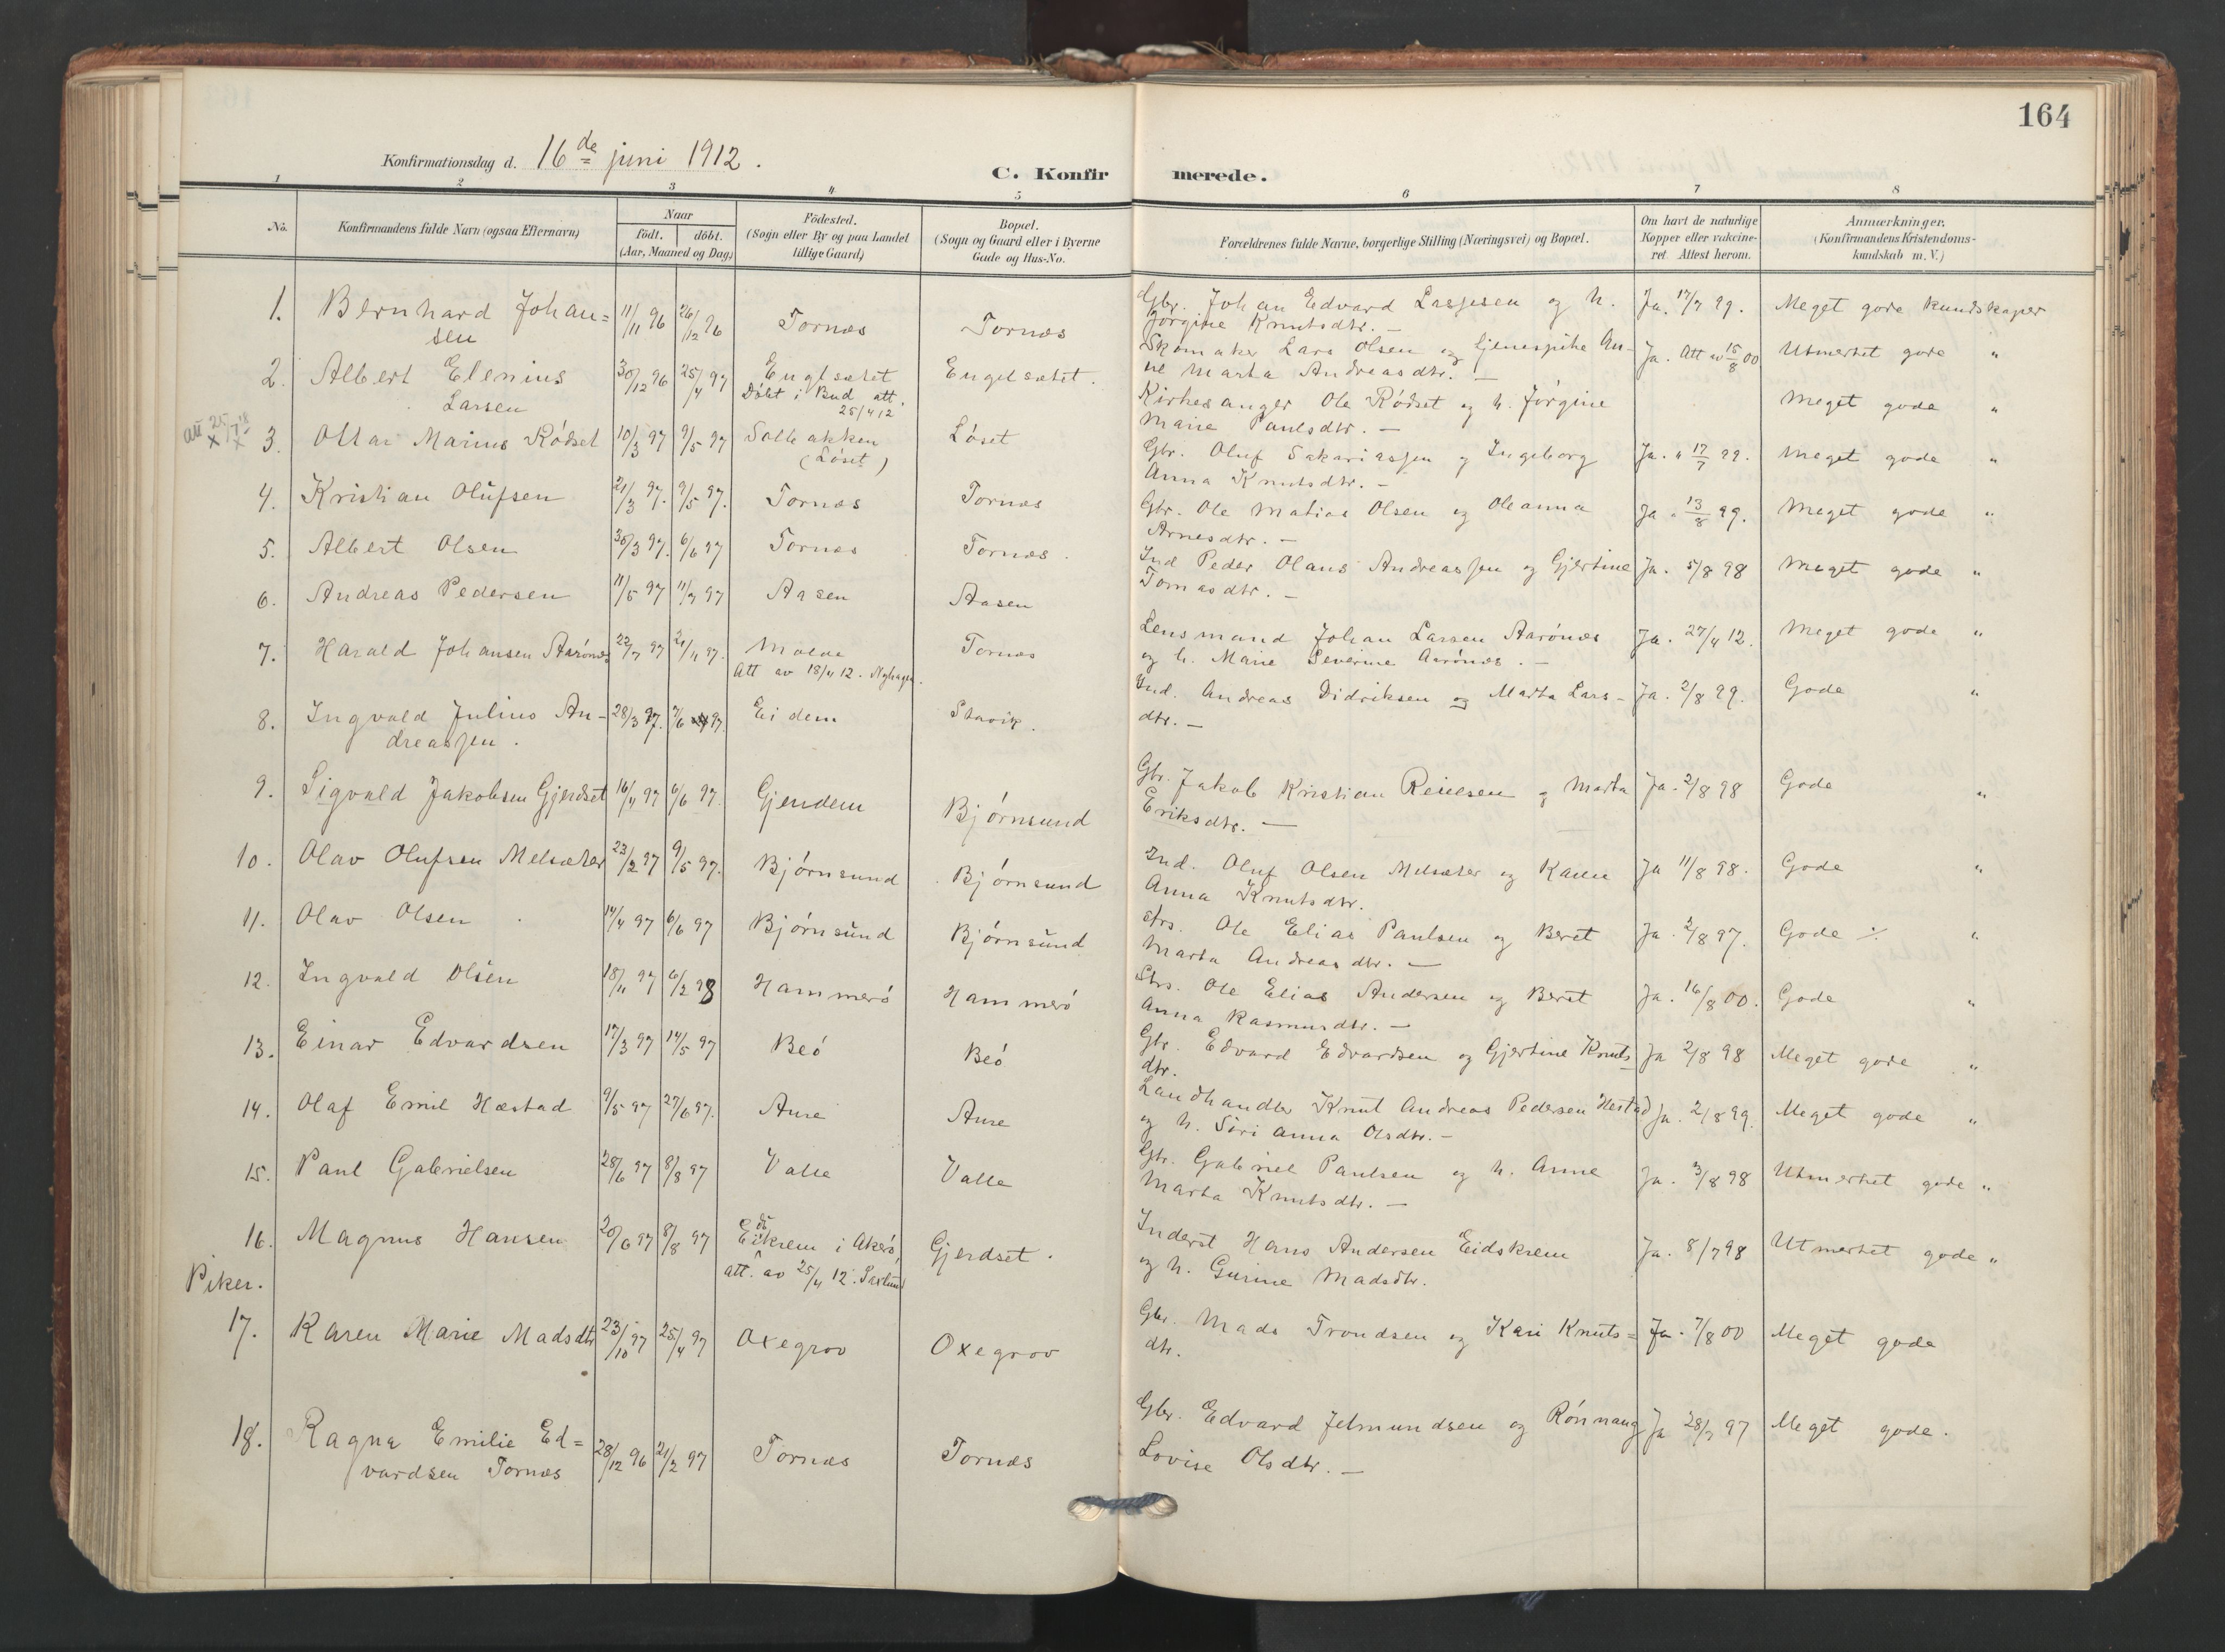 164
Konfirmationsdag d. 16de juni 1912.
C. Konfirmerede.
1 2 3 4 5 6 7 8
No.
Konfirmandens fulde Navn (ogsaa Efternavn)
Naar
födt. döbt.
(Aar, Maaned og Dag)
Födested.
(Sogn eller By og paa Landet
tillige Gaard)
Bopæl.
(Sogn og Gaard eller i Byerne
Gade og Hus-No.
Forældrenes fulde Navne, borgerlige Stilling (Næringsvei) og Bopæl.
Om havt de naturlige
Kopper eller vakcine-
ret Attest herom.
Anmærkninger.
(Konfirmandens Kristendoms-
kundskab m. V.)
1. Bernhard Johan= 11/11 96 26/12 96 Tornæs Tornæs Gbr. Johan Edvard Lassesen og h. Ja. 17/7 99. Meget gode kundskaper
sen Jørgine Knutsdtr. —
2. Albert Elenius 30/12 96 25/4 97 Engelsætet Engelsætet. Skomaker Lars Olsen og tjenespike An- Ja. Att av 15/8 00 Utmerket gode "
Larsen Döbt i Bud att. 25/4 12 ne Marta Andreasdtr. —
att 25/7 18 x x
3. Ottar Marius Rödset 10/3 97 9/5 97 Solbakken Löset Kirkesanger Ole Rödset og h. Jörgine Meget gode "
(Löset) Marie Paulsdtr. —
4. Kristian Olufsen 21/3 97. 9/5 97. Tornæs Tornæs Gbr. Oluf Sakariassen og Ingeborg Ja. " 17/7 99. Meget gode "
Anna Knutsdtr. —
5. Albert Olsen 30/3 97. 6/6 97 Tornæs Tornæs. Gbr. Ole Matias Olsen og Oleanna Ja " 13/8 99. Meget gode "
Arnesdtr. —
6. Andreas Pedersen 11/5 97 11/7 97 Aasen Aasen Ind Peder Olaus Andreassen og Gjertine Ja. 5/8 98 Meget gode "
Tomasdtr. —
7. Harald Johansen Aarönæs 22/7 97 21/11 97. Molde Tornæs Lensmand Johan Larsen Aarönæs Ja. 27/4 12. Meget gode "
Att av 18/4 12. og h. Marie Severine Aarönæs. —
8. Ingvald Julius An- 28/3 97. 7/6 97. Eidem Stavik. Ind. Andreas Didriksen og Marta Lars- Ja. 2/8 99. Gode "
dreassen. dtr. —
9. Sigvald Jakobsen Gjerdset 16/4 97 6/6 97. Gjendem Björnsund Gbr. Jakob Kristian Reiersen og Marta Ja. 2/8 98 Gode "
Eriksdtr. —
10. Olav Olufsen Melsæter 23/2 97 9/5 97. Björnsund Björnsund Ind. Oluf Olsen Melsæter og Karen Ja 11/8 98. Gode "
Anna Knutsdtr.
11. Olav Olsen 14/4 97 6/6 97 Björnsund Björnsund Strs. Ole Elias Paulsen og Beret Ja. 2/8 97. Gode ./. "
Marta Andreasdtr. —
12. Ingvald Olsen 18/11 97 6/2 98 Hammerö Hammerö Strs. Ole Elias Andersen og Beret Ja. 16/8 00. Gode "
Anna Rasmusdtr. —
13. Einar Edvardsen 17/3 97 14/5 97 Beö Beö Gbr. Edvard Edvardsen og Gjertine Knuts- Ja 2/8 98 Meget gode "
dtr.
14. Olaf Emil Hæstad 9/5 97 27/6 97. Aure Aure Landhandler Knut Andreas Pedersen Hestad Ja. 2/8 99. Meget gode "
og h. Siri Anna Olsdtr. —
15. Paul Gabrielsen 28/6 97 8/8 97 Valle Valle Gbr. Gabriel Paulsen og h. Anne Ja. 3/8 98 Utmerket gode "
Marta Knutsdtr. —
16. Magnus Hansen 20/6 97 8/8 97 Eidskrem i Akerö, Gjerdset. Inderst Hans Andersen Eidskrem Ja. 8/7 98 Utmerket gode "
att. av 25/4 12. og h. Gurine Madsdtr.
Piker.
17. Karen Marie Madsdtr 23/10 97 25/4 97 Oxegrov Oxegrov Gbr. Mads Trondsen og Kari Knuts= Ja. 7/8 00 Meget gode
dtr.
18. Ragna Emilie Ed= 28/12 96 21/2 97 Tornæs Tornæs Gbr. Edvard Jetmundsen og Rönnaug Ja 28/7 97 Meget gode.
vardsen Tornæs Lovise Olsdtr. —